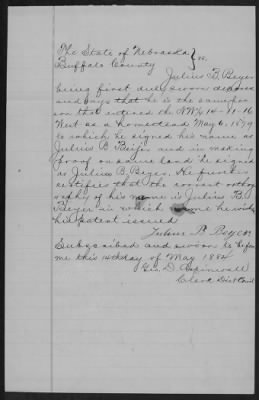 The State of Nebraska } ss.
Buffalo County
Julius B Beyer
being first duly sworn deposes
and says that he is the same per
son that entered the NW¼ 14-11-16
West as a homestead May 6, 1879
to which he signed his name as
Julius B and in making
proof on same land he signed
as Julius B. Beyer. He further
testifies that the correct ortho
graphy of his name is Julius B.
Beyer in which name he wish
his patent issued
Julius B Beyer
Subscribed and sworn to before
me this 14th day of May 1884
Geo. D. Aspinwall
Clerk Dist Court